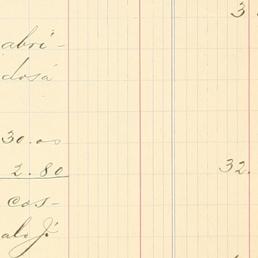 3
abri-
dosá
30.00
2.80 32.
cos-